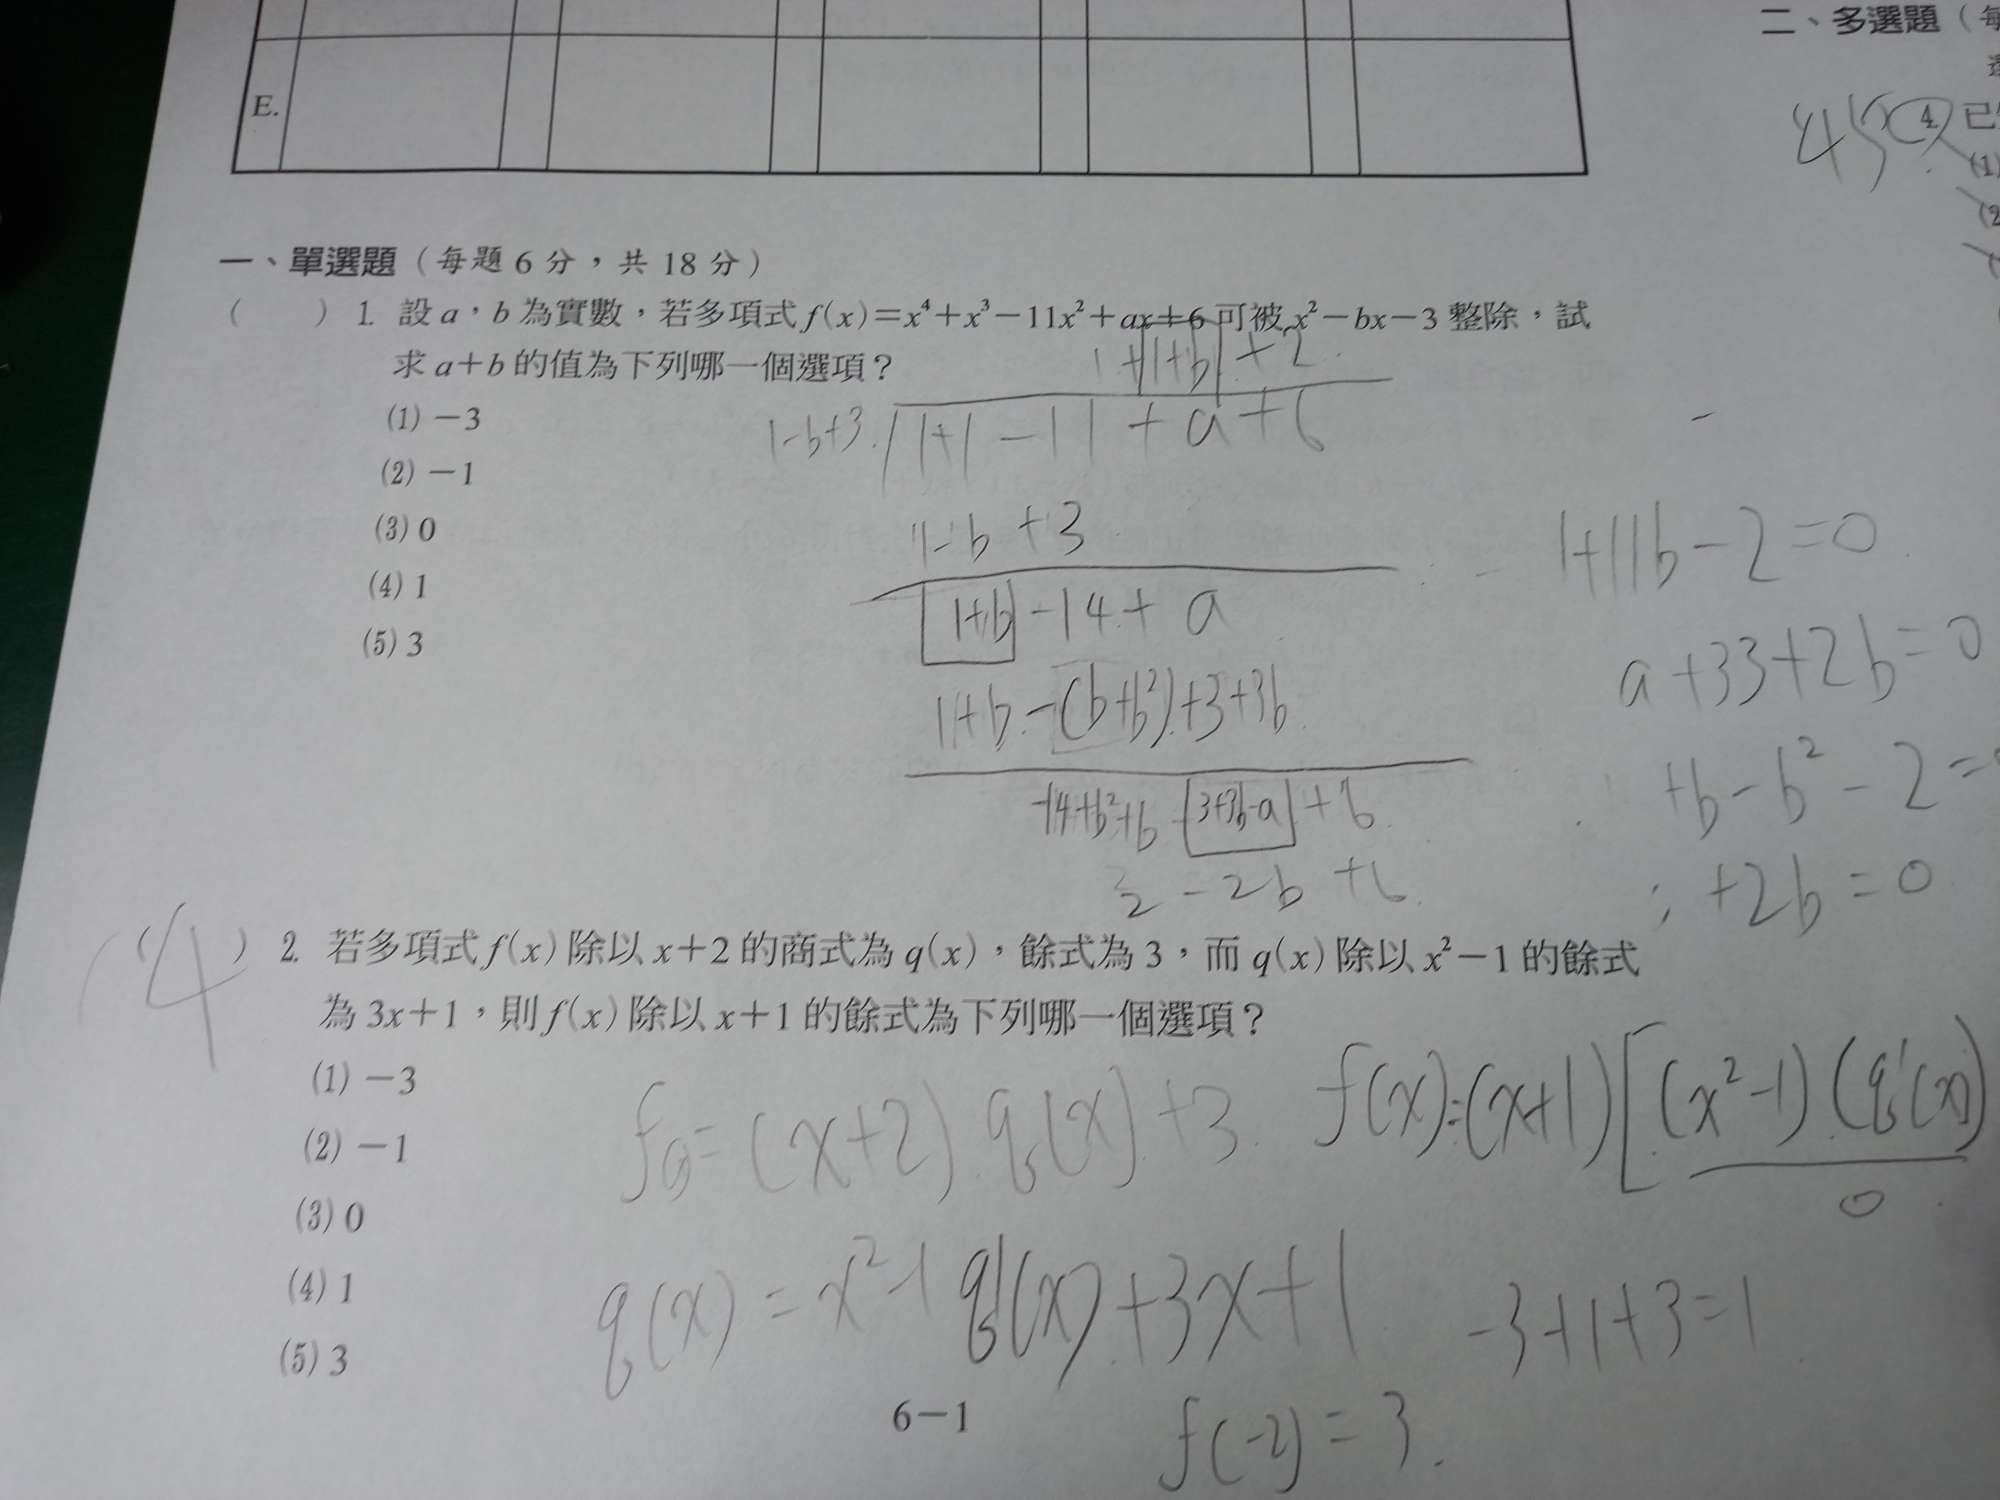 E.
二、多選題（每
45
4. 已
(1)
(2
一、單選題（每題 6 分，共 18 分）
（　　）1. 設 a，b 為實數，若多項式 f(x)＝x⁴＋x³－11x²＋ax＋6 可被 x²－bx－3 整除，試
求 a＋b 的值為下列哪一個選項？
(1) －3
(2) －1
(3) 0
(4) 1
(5) 3
1+1+b+2
1-b+3 1+1-11+a+6
1-b+3
1+b-14+a
1+b-(b+b²)+3+3b
-14+b²+b-3+3b-a+6
2-2b+6
1+11b-2=0
a+33+2b=0
+b-b²-2=
+2b=0
（ 4 ）2. 若多項式 f(x) 除以 x＋2 的商式為 q(x)，餘式為 3，而 q(x) 除以 x²－1 的餘式
為 3x＋1，則 f(x) 除以 x＋1 的餘式為下列哪一個選項？
(1) －3
(2) －1
(3) 0
(4) 1
(5) 3
f(x)=(x+2) q(x)+3
f(x)=(x+1)[(x²-1)(q'(x)
0
q(x)=x²-1 q'(x)+3x+1
-3+1+3=1
f(-2)=3.
6－1